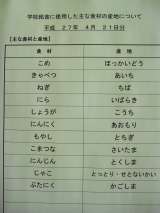 学校給食に使用した主な食材の産地について
平成 27年 4月 21日分
【主な食材と産地】
食材 産地
こめ ほっかいどう
きゃべつ あいち
ねぎ ちば
にら いばらき
しょうが こうち
にんにく あおもり
もやし とちぎ
こまつな さいたま
にんじん とくしま
じゃこ とっとり・せとないかい
ぶたにく かごしま